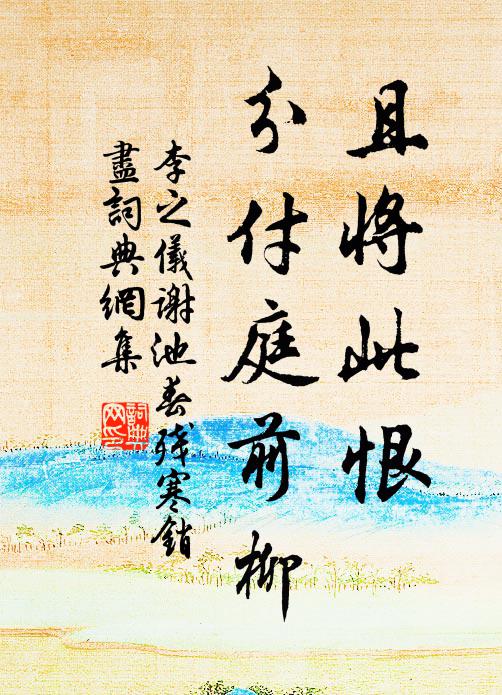 且将此恨
分付庭前柳
李之儀謝池春残寒銷
盡詞典網集
詞典网印